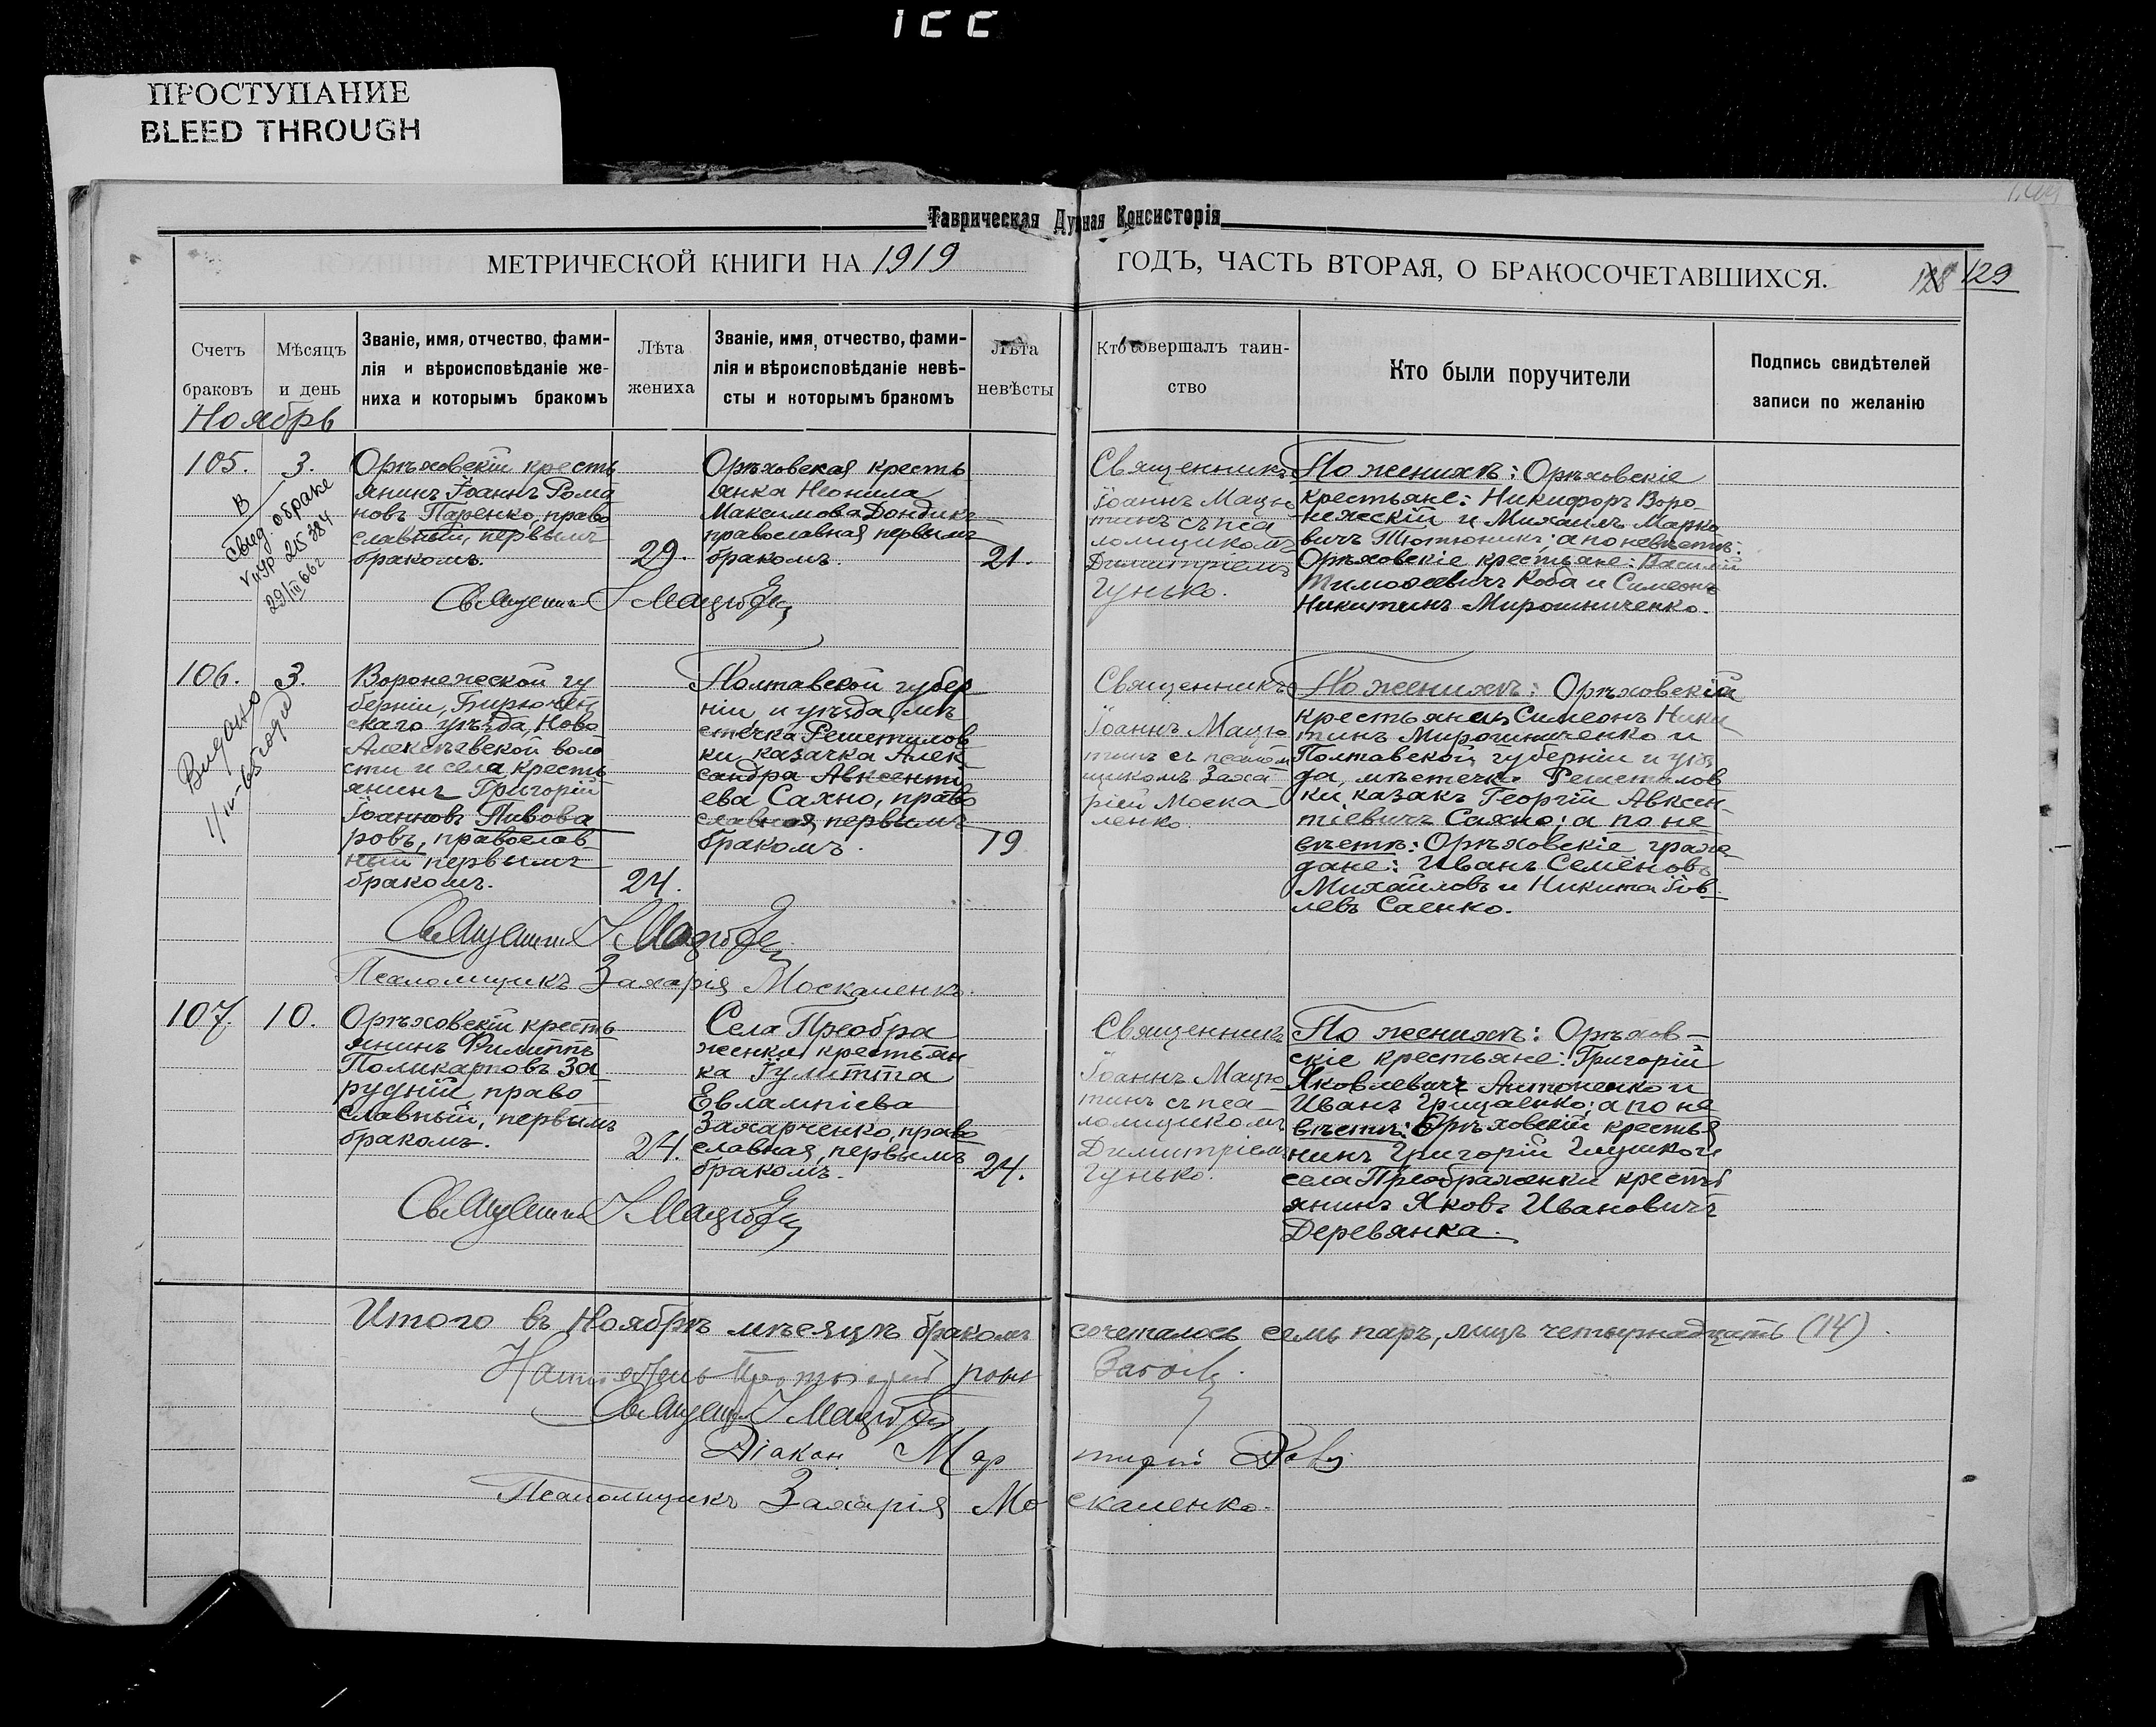 ПРОСТУПАНИЕ
BLEED THROUGH
Таврическая Духная Консисторія
МЕТРИЧЕСКОЙ КНИГИ НА 1919
ГОДЪ, ЧАСТЬ ВТОРАЯ, О БРАКОСОЧЕТАВШИХСЯ.
128 129
Счетъ
браковъ
Мѣсяцъ
и день
Званіе, имя, отчество, фами-
лія и вѣроисповѣданіе же-
ниха и которымъ бракомъ
Лѣта
жениха
Званіе, имя, отчество, фами-
лія и вѣроисповѣданіе невѣ-
сты и которымъ бракомъ
Лѣта
невѣсты
Кто совершалъ таин-
ство
Кто были поручители
Подпись свидѣтелей
записи по желанію
Ноябрь
105.
3.
В
свид. о браке
V ИУР 215384
29/III 66г
Орѣховскій кресть
янинъ Іоаннъ Рома
новъ Паренко, право
славный, первымъ
бракомъ.
29.
Орѣховская кресть
янка Неонила
Максимова Дондикъ
православная первымъ
бракомъ.
21.
Священникъ
Іоаннъ Мацю
тинъ съ пса
ломщикомъ
Димитріемъ
Гунько.
По женихѣ: Орѣховскіе
крестьяне: Никифоръ Воро
нежскій и Михаилъ Марко
вичъ Тютюникъ; а по невѣстѣ:
Орѣховскіе крестьяне: Василій
Тимоѳеевичъ Коба и Симеонъ
Никитинъ Мирошниченко.
106.
3.
Видано
1/IV-65 года
Воронежской гу
берніи, Бирючен
скаго уѣзда, Ново
Алексѣевской воло
сти и села, кресть
янинъ Григорій
Іоанновъ Пивова
ровъ, православ
ный первымъ
бракомъ.
24.
Полтавской губер
ніи и уѣзда, мѣ
стечка Решетилов
ки казачка Алек
сандра Авксенти
ева Сахно, право
славная, первымъ
бракомъ.
19
Священникъ
Іоаннъ Мацю
тинъ съ псалом
щикомъ Заха
ріей Моска
ленко.
По женихѣ: Орѣховскій
крестьянинъ Симеонъ Ники
тинъ Мирошниченко и
Полтавской губерніи и уѣз
да, мѣстечка Решетилов
ки, казакъ Георгій Авксен
тіевичъ Сахно; а по не
вѣстѣ: Орѣховскіе граж
дане: Иванъ Семёновъ
Михайловъ и Никита Іов
левъ Саенко.
Псаломщикъ Захарія Москаленко.
107.
10.
Орѣховскій кресть
янинъ Филиппъ
Поликарповъ За
рудній право
славный, первымъ
бракомъ.
24.
Села Преобра
женки крестьян
ка Іулитта
Евлампіева
Захарченко, право
славная, первымъ
бракомъ.
24.
Священникъ
Іоаннъ Мацю
тинъ съ пса
ломщикомъ
Димитріемъ
Гунько.
По женихѣ: Орѣхов-
скіе крестьяне: Григорій
Яковлевичъ Антоненко и
Иванъ Грицаенко; а по не
вѣстѣ: Орѣховскій крестья
нинъ Григорій Глушко и
села Преображенки кресть
янинъ Яковъ Ивановичъ
Деревянка.
Итого въ Ноябрѣ мѣсяцѣ бракомъ сочеталось семь паръ, лицъ четырнадцать (14).
Настоятель Протоіерей
Діакон
Псаломщикъ Захарія Москаленко.